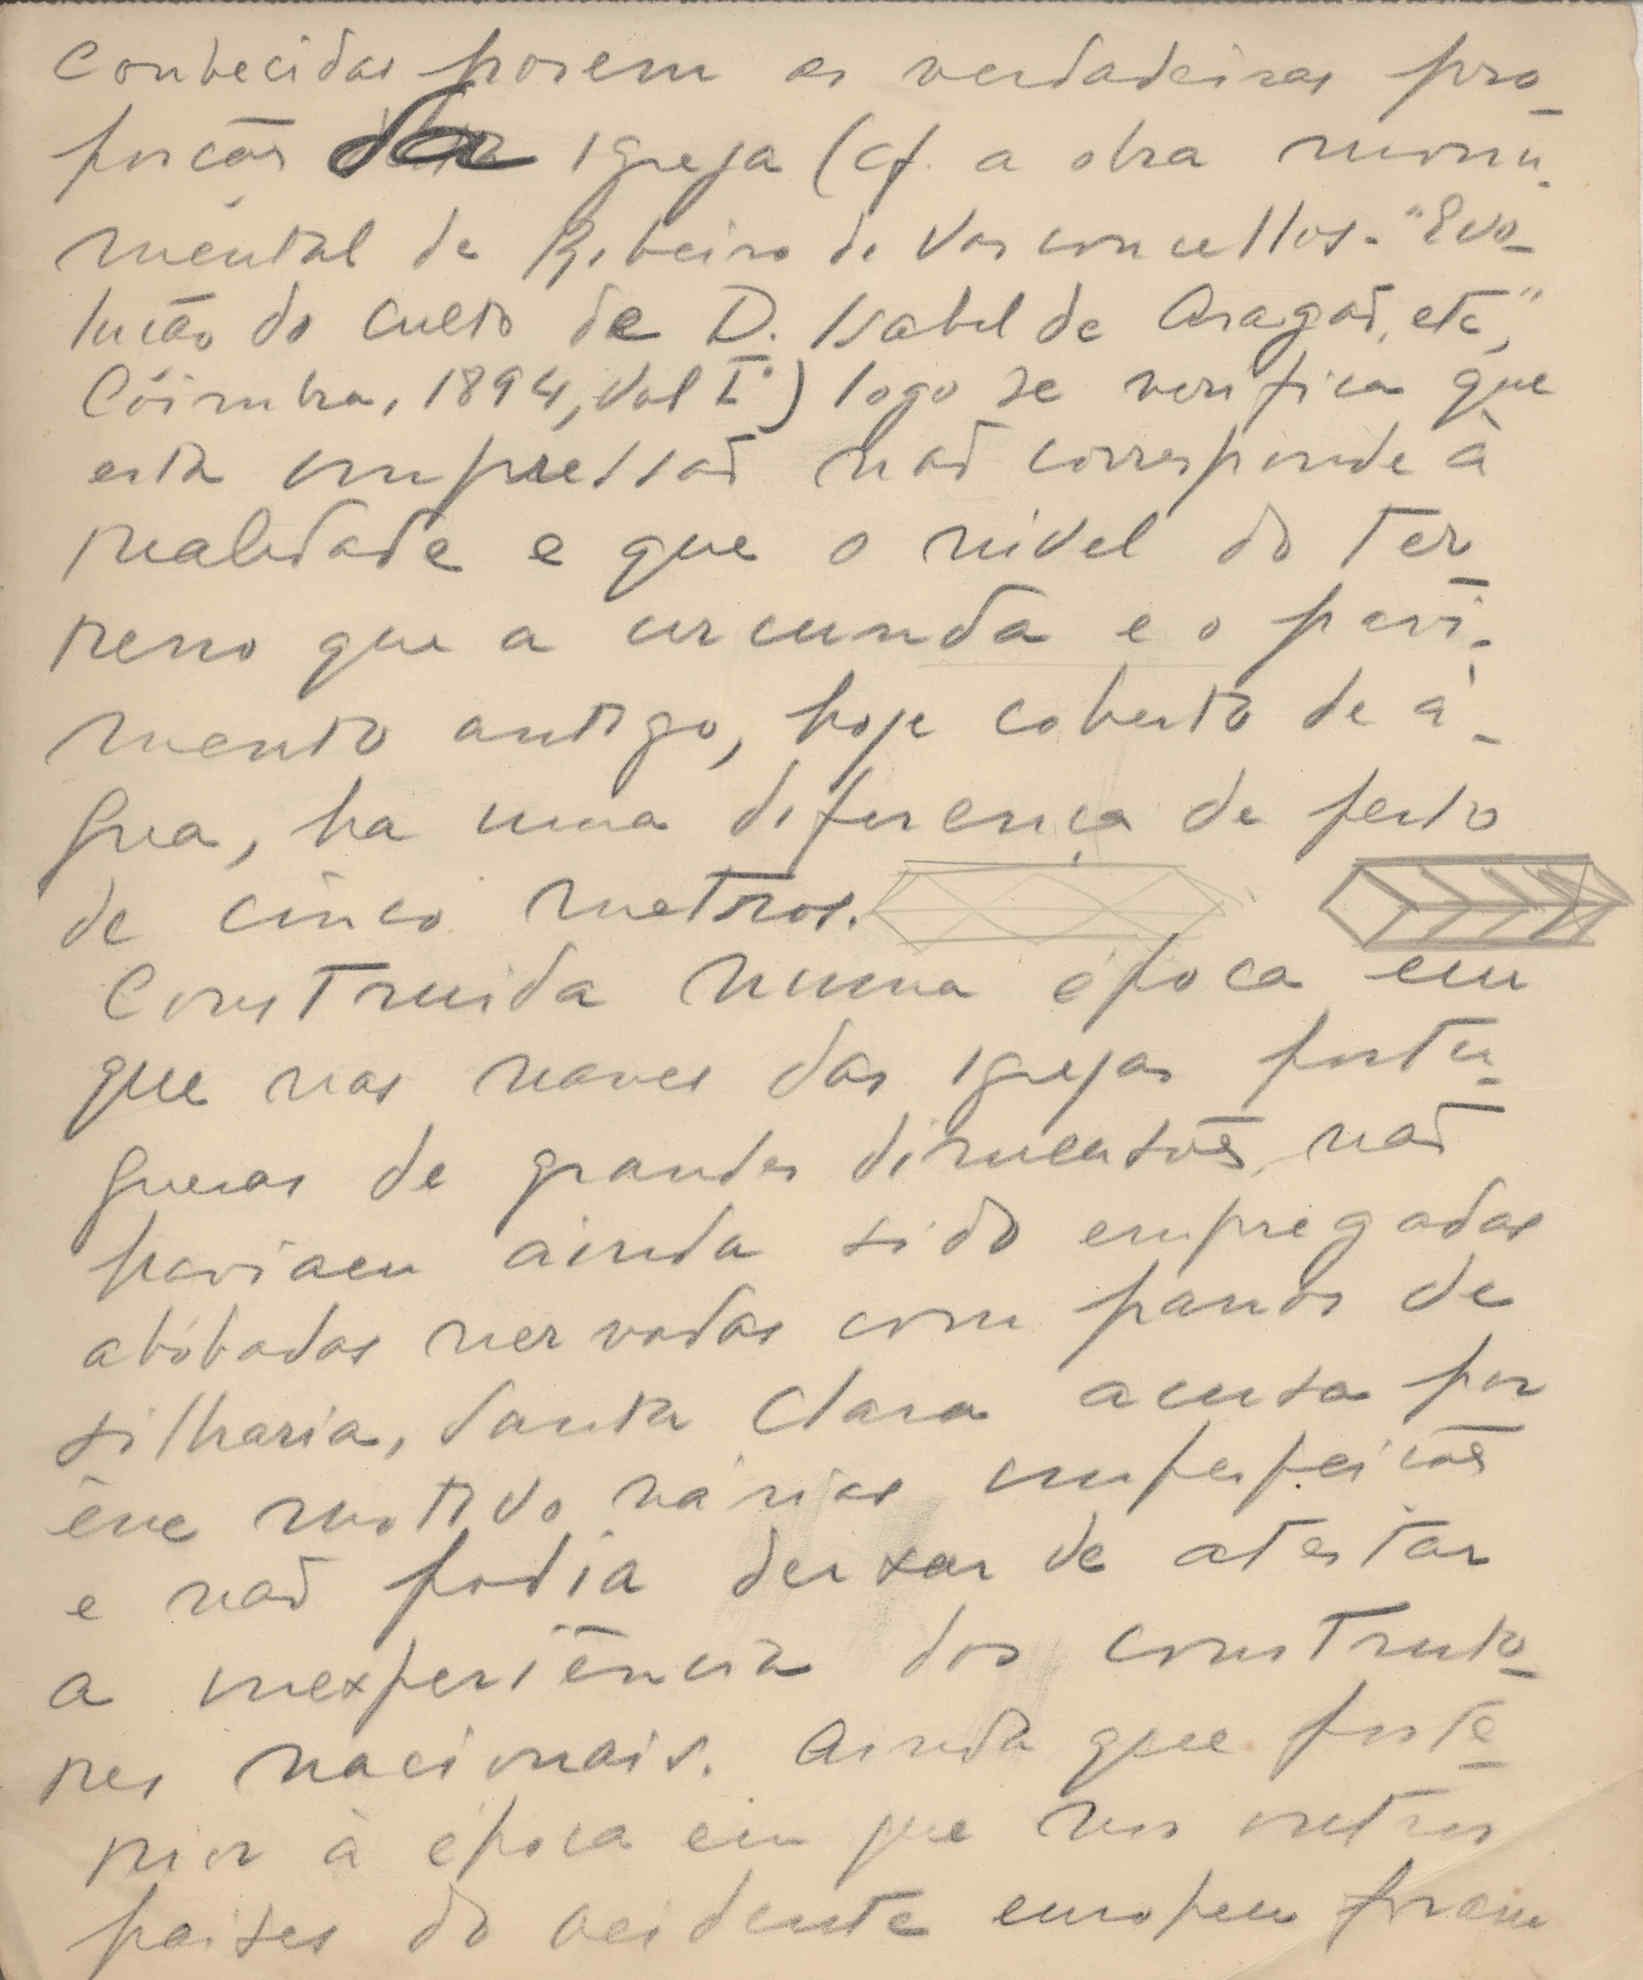 Conhecidas porem as verdadeiras pro-
porcões da igreja (cf. a obra monu-
mental de Ribeiro de Vasconcellos. "Evo-
lução do culto de D. Isabel de Aragão, etc,"
Cóimbra, 1894, Vol I.º) logo se verifica que
esta impressão não corresponde à
realidade e que o nivel do ter-
reno que a circunda e o pavi-
mento antigo, hoje coberto de á-
gua, ha uma diferença de perto
de cinco metros.
Construida numa época em
que nas naves das igrejas portu-
guesas de grandes dimensões não
haviam ainda sido empregadas
abóbadas nervadas com panos de
silharia, Santa Clara acusa por
êsse motivo várias imperfeicões
e não podia deixar de atestar
a inexperiência dos construto-
res nacionais. Ainda que poste-
rior à época em que nos outros
paises do ocidente europeu foram